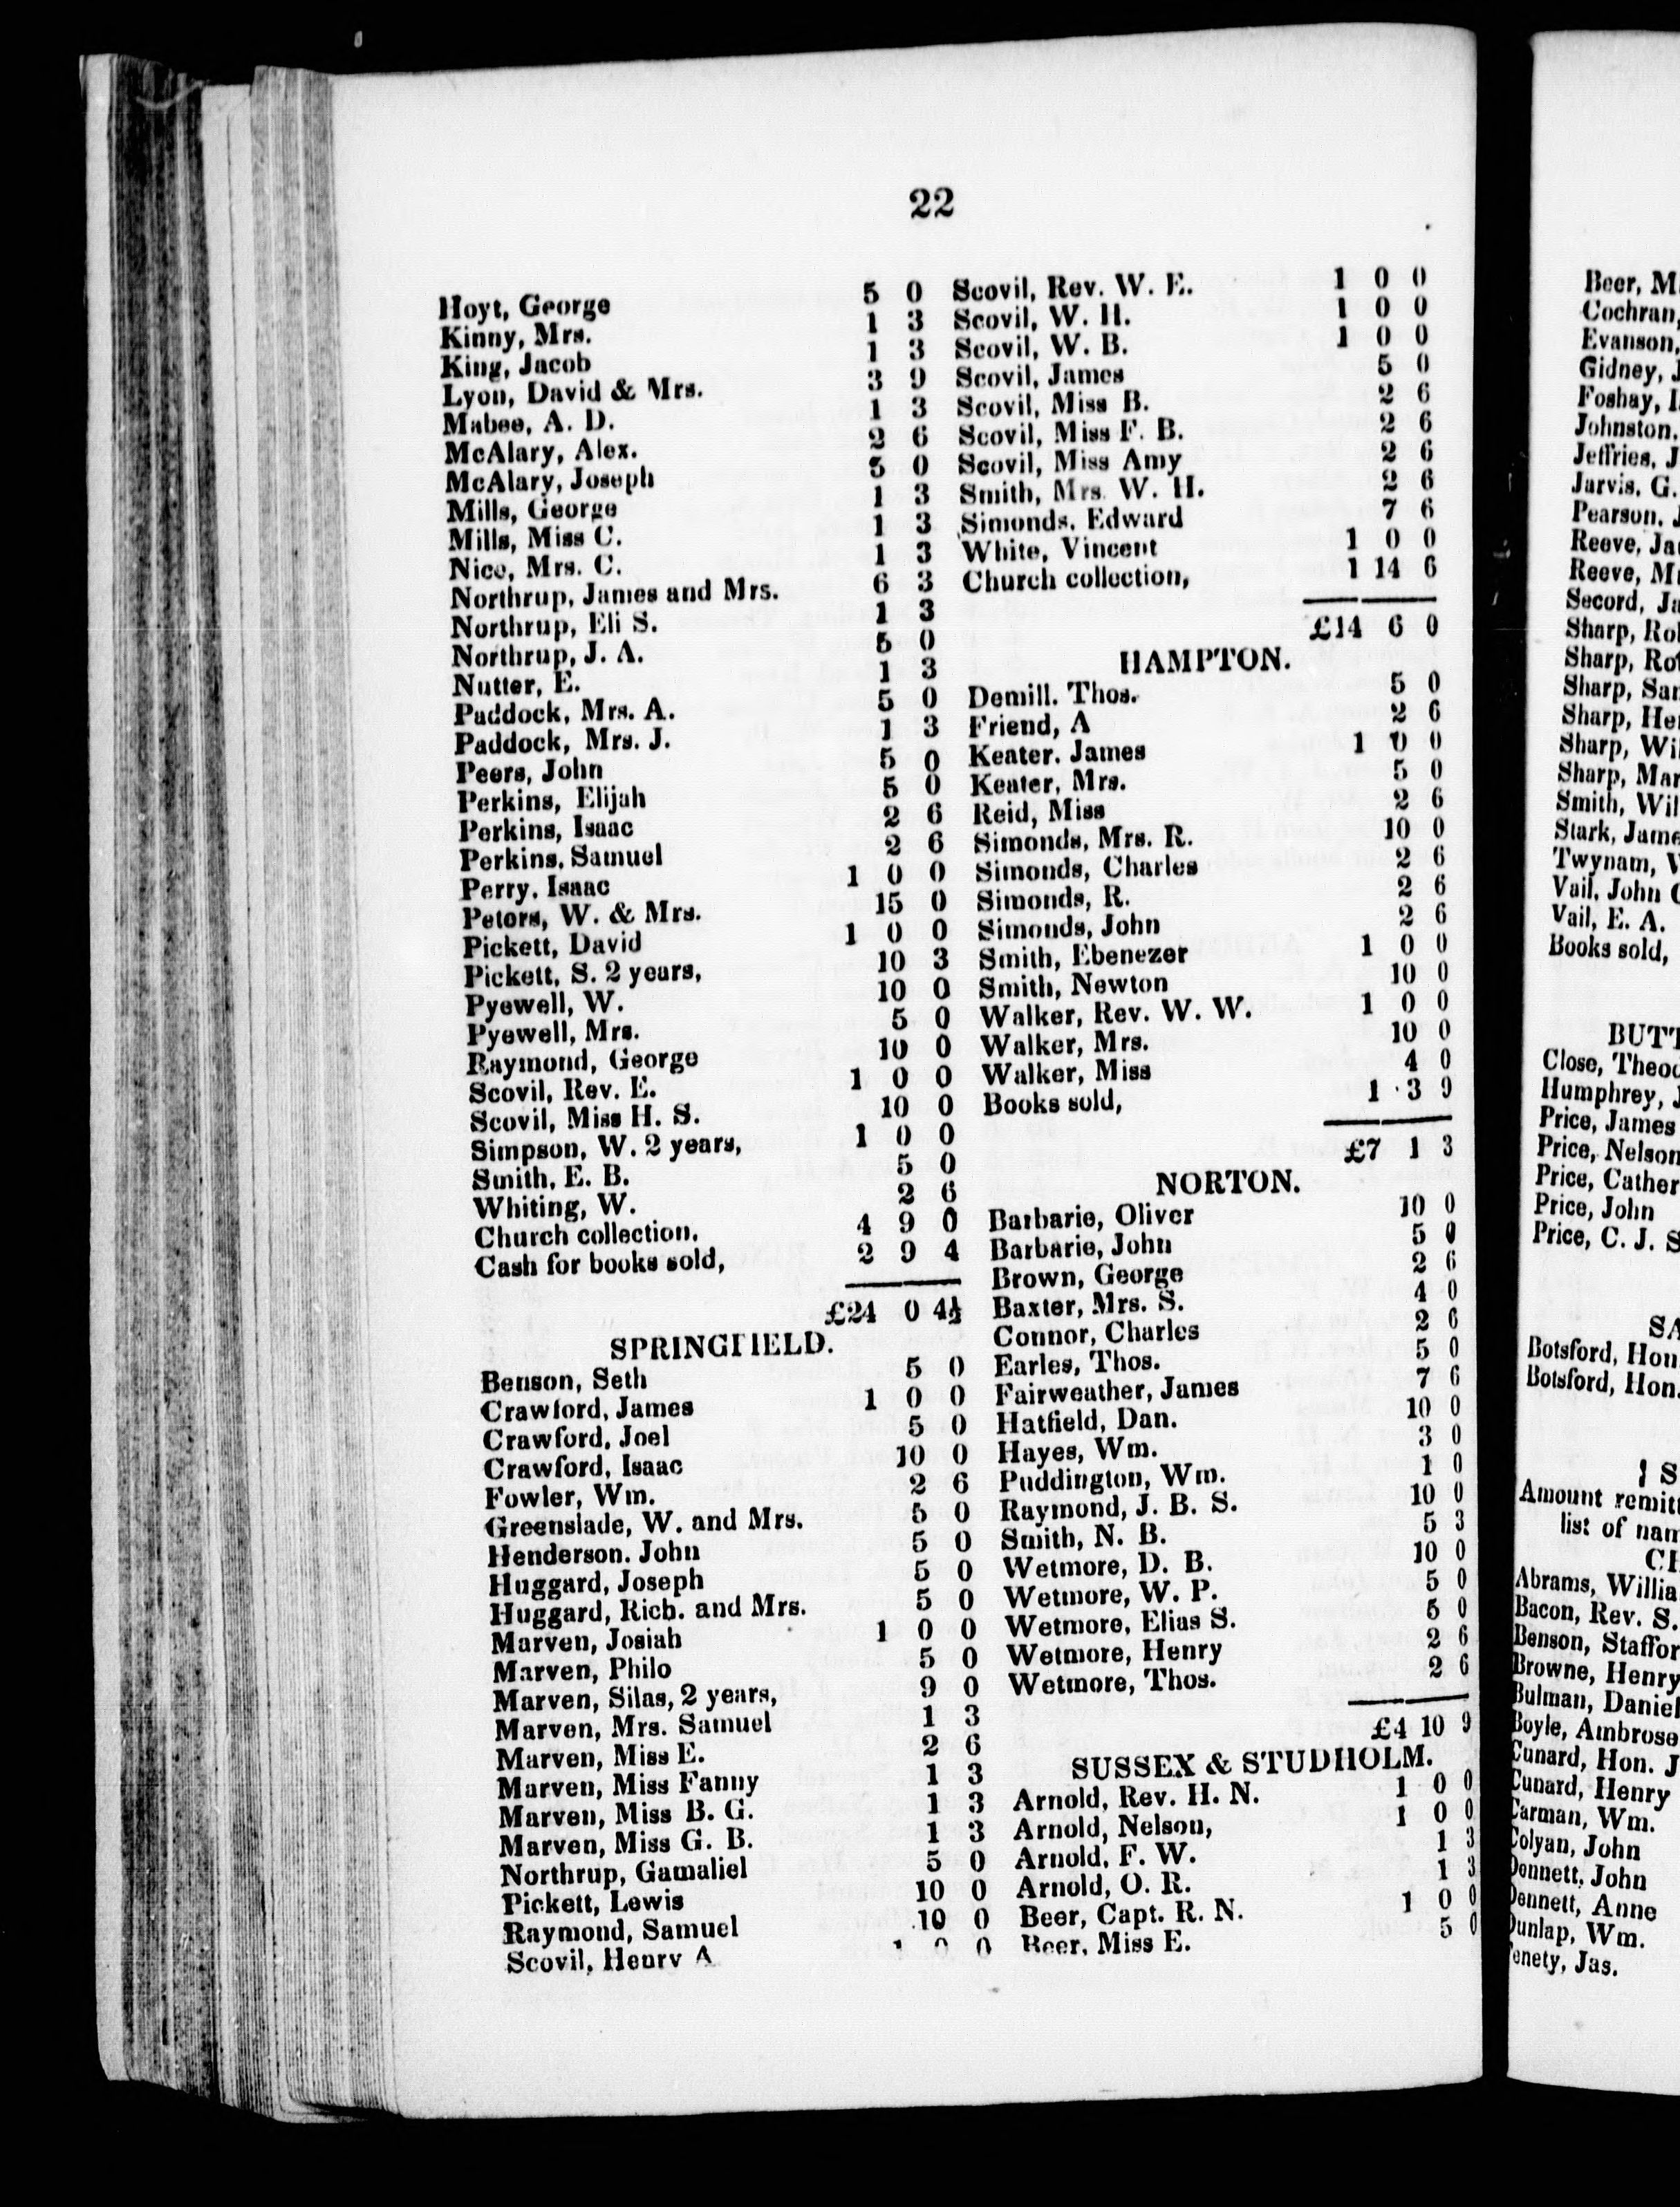 22
Hoyt, George 5 0
Kinny, Mrs. 1 3
King, Jacob 1 3
Lyon, David & Mrs. 3 9
Mabee, A. D. 1 3
McAlary, Alex. 2 6
McAlary, Joseph 5 0
Mills, George 1 3
Mills, Miss C. 1 3
Nice, Mrs. C. 1 3
Northrup, James and Mrs. 6 3
Northrup, Eli S. 1 3
Northrup, J. A. 5 0
Nutter, E. 1 3
Paddock, Mrs. A. 5 0
Paddock, Mrs. J. 1 3
Peers, John 5 0
Perkins, Elijah 5 0
Perkins, Isaac 2 6
Perkins, Samuel 2 6
Perry, Isaac 1 0 0
Peters, W. & Mrs. 15 0
Pickett, David 1 0 0
Pickett, S. 2 years, 10 3
Pyewell, W. 10 0
Pyewell, Mrs. 5 0
Raymond, George 10 0
Scovil, Rev. E. 1 0 0
Scovil, Miss H. S. 10 0
Simpson, W. 2 years, 1 0 0
Smith, E. B. 5 0
Whiting, W. 2 6
Church collection, 4 9 0
Cash for books sold, 2 9 4
£24 0 4½
SPRINGFIELD.
Benson, Seth 5 0
Crawford, James 1 0 0
Crawford, Joel 5 0
Crawford, Isaac 10 0
Fowler, Wm. 2 6
Greenslade, W. and Mrs. 5 0
Henderson. John 5 0
Huggard, Joseph 5 0
Huggard, Rich. and Mrs. 5 0
Marven, Josiah 1 0 0
Marven, Philo 5 0
Marven, Silas, 2 years, 9 0
Marven, Mrs. Samuel 1 3
Marven, Miss E. 2 6
Marven, Miss Fanny 1 3
Marven, Miss B. G. 1 3
Marven, Miss G. B. 1 3
Northrup, Gamaliel 5 0
Pickett, Lewis 10 0
Raymond, Samuel 10 0
Scovil, Henry A 1 0 0
Scovil, Rev. W. E. 1 0 0
Scovil, W. H. 1 0 0
Scovil, W. B. 1 0 0
Scovil, James 5 0
Scovil, Miss B. 2 6
Scovil, Miss F. B. 2 6
Scovil, Miss Amy 2 6
Smith, Mrs. W. H. 2 6
Simonds, Edward 7 6
White, Vincent 1 0 0
Church collection, 1 14 6
£14 6 0
HAMPTON.
Demill. Thos. 5 0
Friend, A 2 6
Keater. James 1 0 0
Keater, Mrs. 5 0
Reid, Miss 2 6
Simonds, Mrs. R. 10 0
Simonds, Charles 2 6
Simonds, R. 2 6
Simonds, John 2 6
Smith, Ebenezer 1 0 0
Smith, Newton 10 0
Walker, Rev. W. W. 1 0 0
Walker, Mrs. 10 0
Walker, Miss 4 0
Books sold, 1 3 9
£7 1 3
NORTON.
Barbarie, Oliver 10 0
Barbarie, John 5 0
Brown, George 2 6
Baxter, Mrs. S. 4 0
Connor, Charles 2 6
Earles, Thos. 5 0
Fairweather, James 7 6
Hatfield, Dan. 10 0
Hayes, Wm. 3 0
Puddington, Wm. 1 0
Raymond, J. B. S. 10 0
Smith, N. B. 5 3
Wetmore, D. B. 10 0
Wetmore, W. P. 5 0
Wetmore, Elias S. 5 0
Wetmore, Henry 2 6
Wetmore, Thos. 2 6
£4 10 9
SUSSEX & STUDHOLM.
Arnold, Rev. H. N. 1 0 0
Arnold, Nelson, 1 0 0
Arnold, F. W. 1 3
Arnold, O. R. 1 3
Beer, Capt. R. N. 1 0 0
Beer, Miss E. 5 0
Beer, M
Cochran,
Evanson,
Gidney, J
Foshay,
Johnston.
Jeffries, J
Jarvis. G.
Pearson. J
Reeve, Ja
Reeve, M
Secord, Ja
Sharp, Ro
Sharp, Ro
Sharp, Sa
Sharp, He
Sharp, Wi
Sharp, Mar
Smith, Wil
Stark, Jame
Twynam,
Vail, John
Vail, E. A.
Books sold,
BUTT
Close, Theo
Humphrey, J
Price, James
Price, Nelson
Price, Cather
Price, John
Price, C. J. S
SA
Botsford, Hon
Botsford, Hon.
S
Amount remit
list of nam
Abrams, Willia
Bacon, Rev. S.
Benson, Staffor
Browne, Henry
Bulman, Daniel
Boyle, Ambrose
Cunard, Hon. J
Cunard, Henry
Carman, Wm.
Colyan, John
Dennett, John
Dennett, Anne
Dunlap, Wm.
enety, Jas.